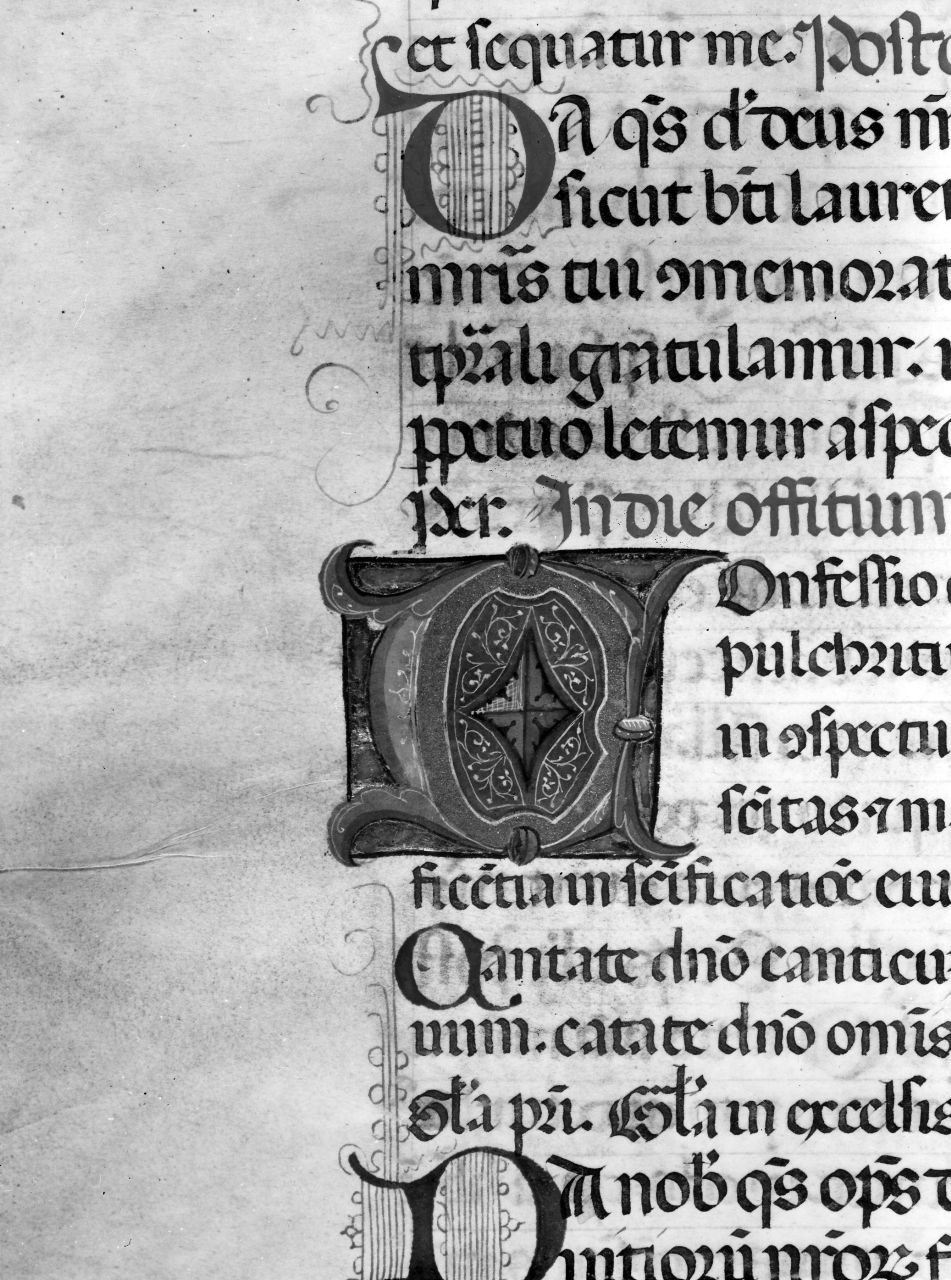 et sequatur me. Postc
DA q̄s d' deus nr̄
sicut bt̄i lauren
mr̄is tui ꝯmemorat
tp̄rali gratulamur.
ꝑpetuo letemur aspec
Per. In die offitium
COnfessio
pulchritu
in ꝯspectu
sc̄itas ⁊ m
ficēt̄ia in sc̄ificatiōe eiu
Cantate dn̄o canticu
uum. cātate dn̄o om̄is
Gl'a pr̄i. Gl'a in excelsis
DA nob' q̄s op̄s